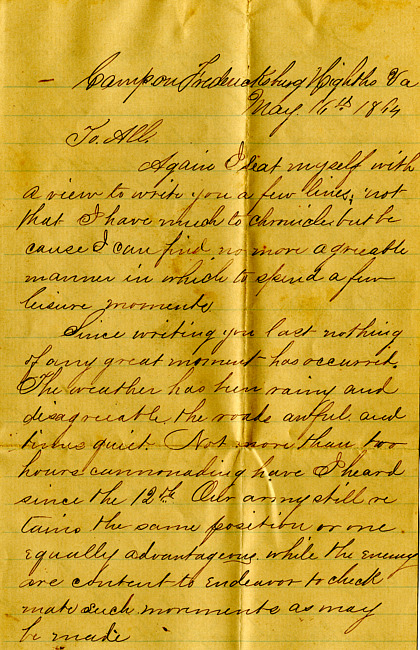 Camp on Fredericksburg Hights Va
May 16th 1864
To All.
Again I seat myself with
a view to write you a few lines, not
that I have much to chronicle but be
cause I can find no more agreeable
manner in which to spend a few
leisure moments
Since writing you last nothing
of any great moment has occurred.
The weather has been rainy and
disagreeable, the roads awful and
times quiet. Not more than two
hours cannonading have I heard
since the 12th. Our army still re
tains the same position or one
equally advantageous while the enemy
are content to endeavor to check
mate such movements as may
be made